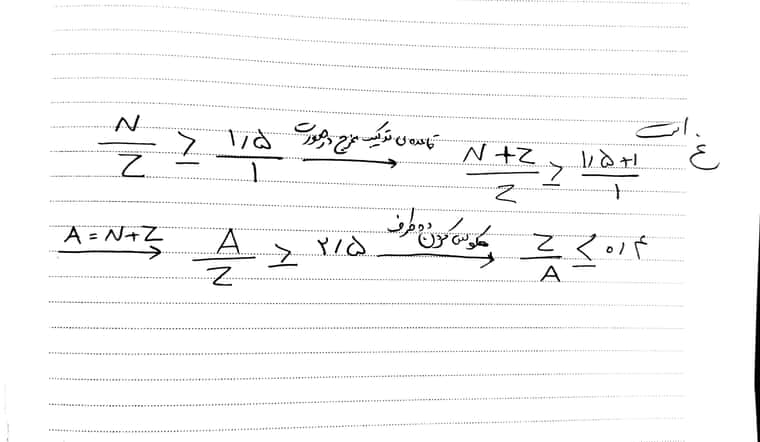 N/Z ≥ ۱/۵/۱ قاعده‌ی ترکیب مخرج در صورت → N+Z/Z ≥ ۱/۵+۱/۱
A = N+Z → A/Z ≥ ۲/۵ معکوس کردن دو طرف → Z/A ≤ ۰/۴